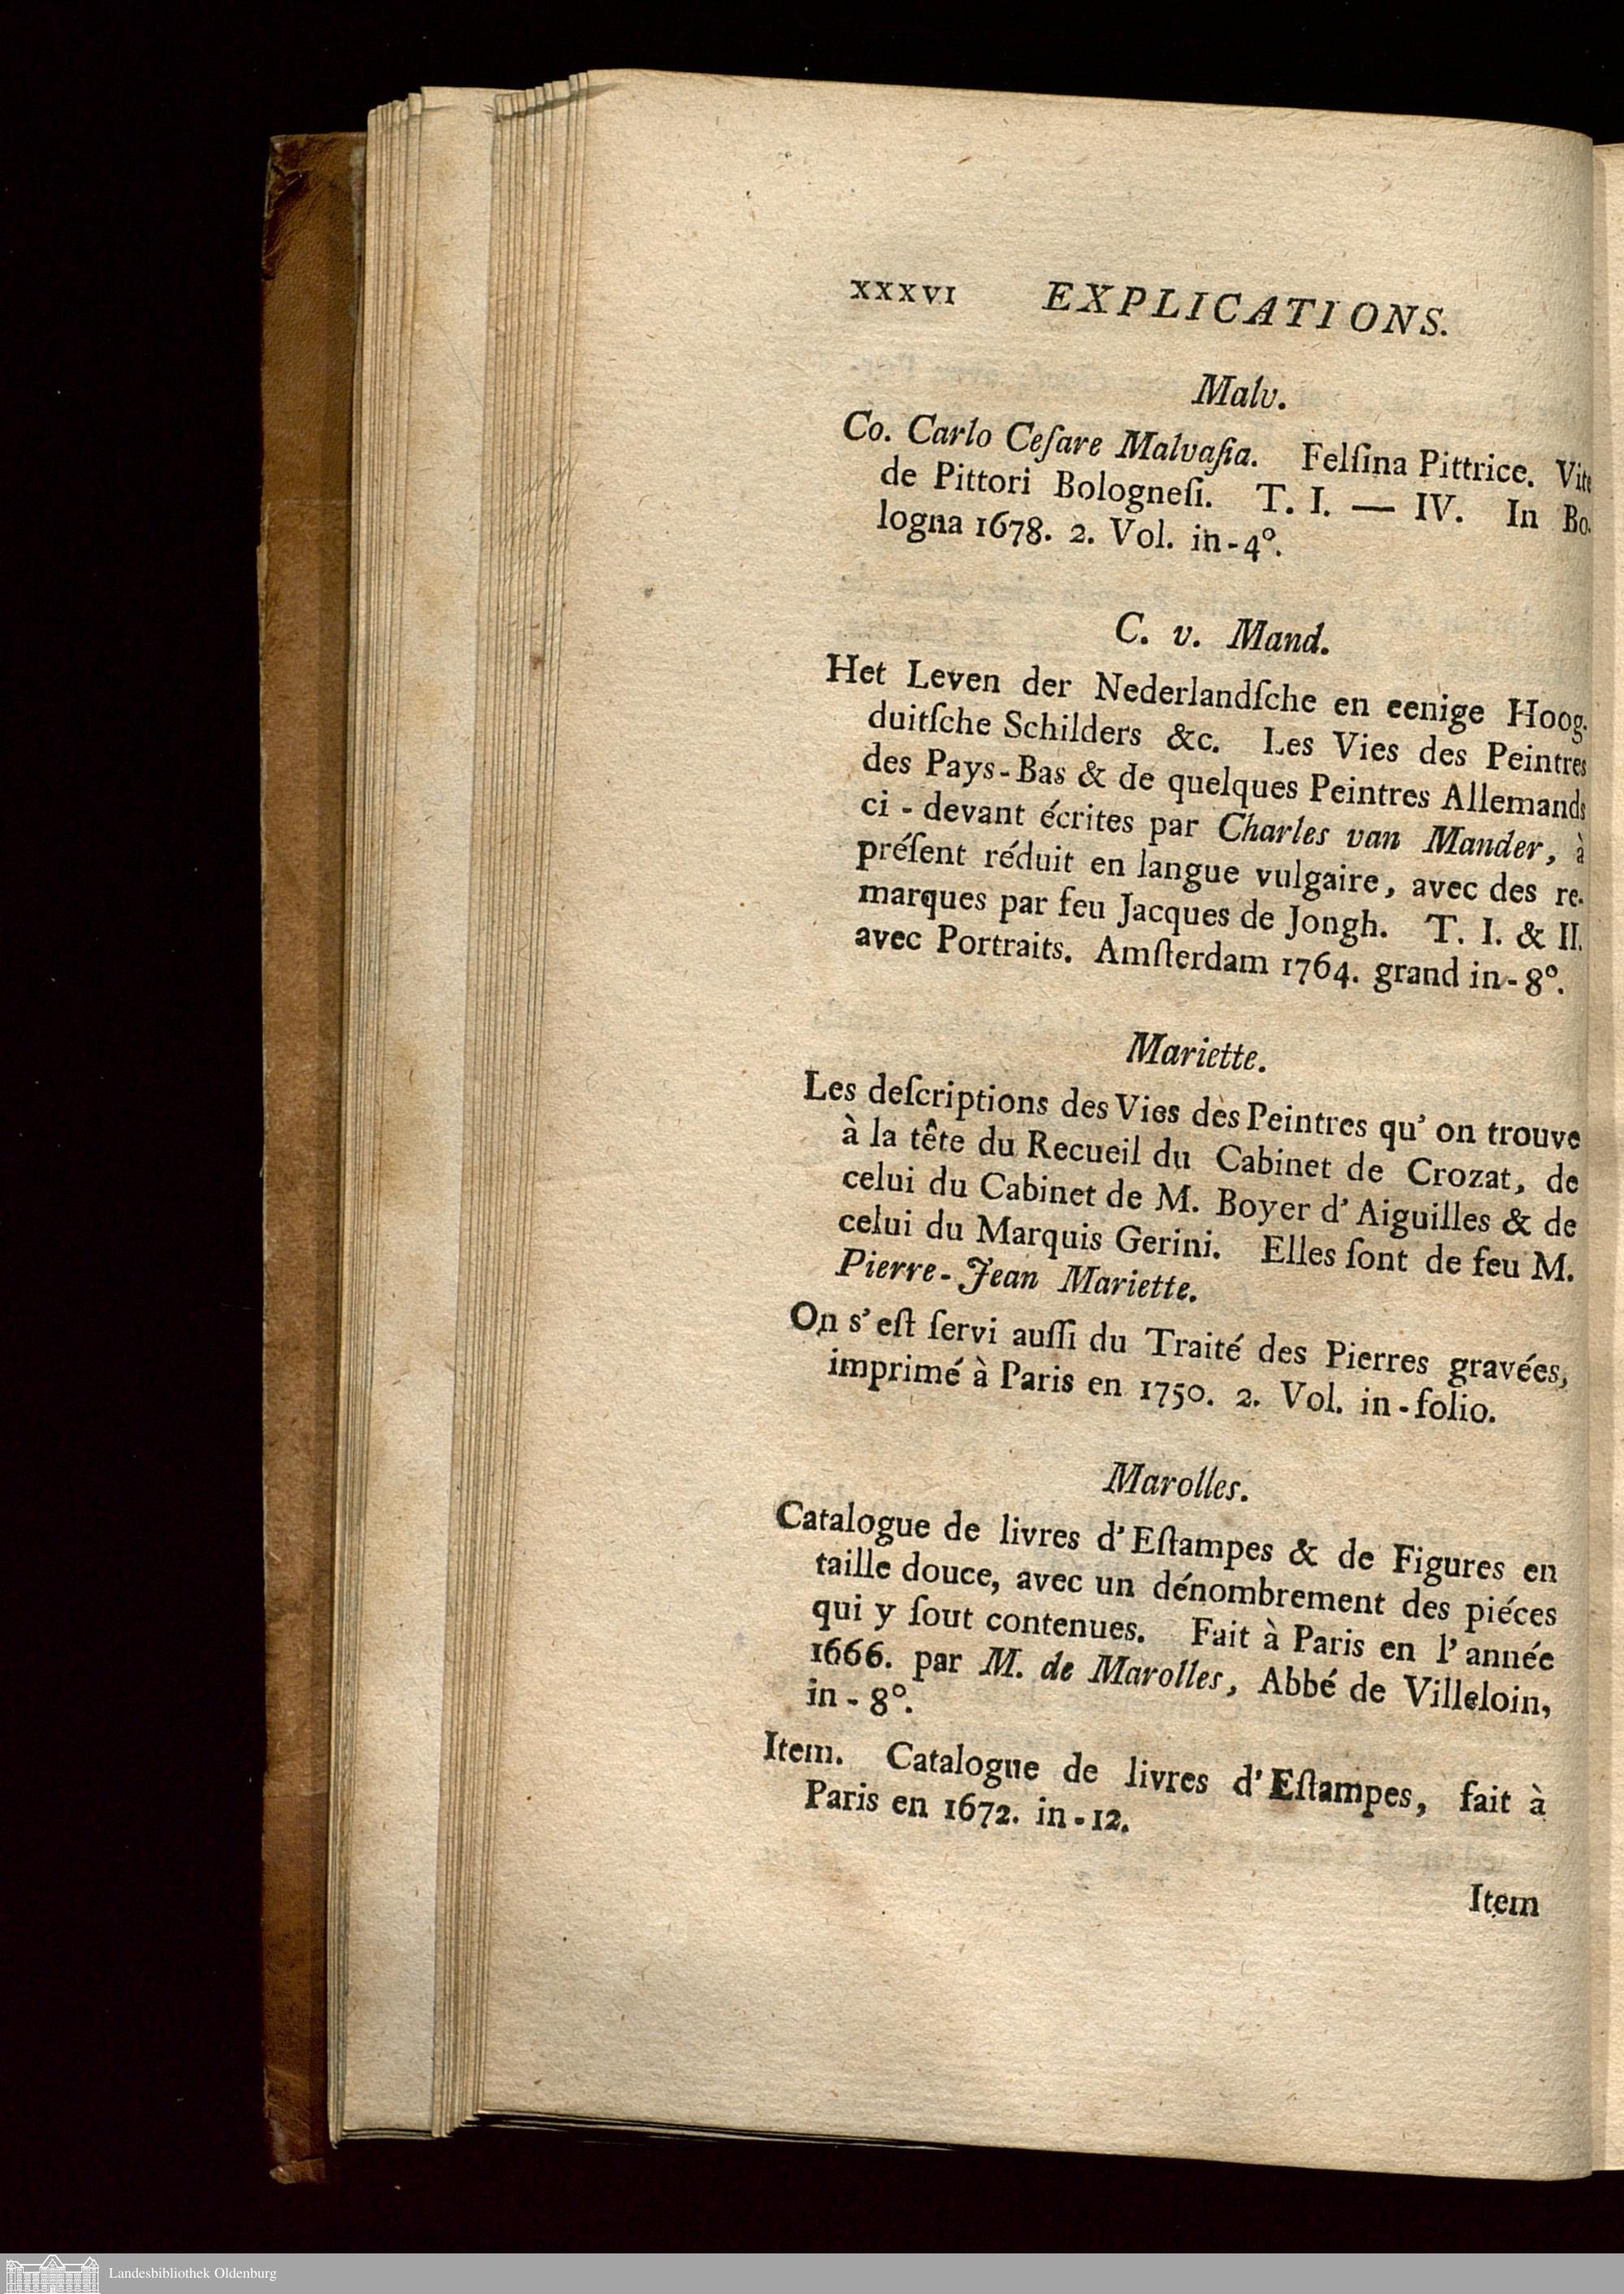 XXXVI EXPLICATIONS.
Malv.
Co. Carlo Ceſare Malvaſia. Felſina Pittrice. Vite
de Pittori Bologneſi. T. I. — IV. In Bo-
logna 1678. 2. Vol. in-4°.
C. v. Mand.
Het Leven der Nederlandſche en eenige Hoog-
duitſche Schilders &c. Les Vies des Peintres
des Pays-Bas & de quelques Peintres Allemands
ci-devant écrites par Charles van Mander, à
préſent réduit en langue vulgaire, avec des re-
marques par feu Jacques de Jongh. T. I. & II.
avec Portraits. Amſterdam 1764. grand in-8°.
Mariette.
Les deſcriptions des Vies des Peintres qu' on trouve
à la tête du Recueil du Cabinet de Crozat, de
celui du Cabinet de M. Boyer d' Aiguilles & de
celui du Marquis Gerini. Elles ſont de feu M.
Pierre-Jean Mariette.
On s' eſt ſervi auſſi du Traité des Pierres gravées,
imprimé à Paris en 1750. 2. Vol. in-folio.
Marolles.
Catalogue de livres d' Eſtampes & de Figures en
taille douce, avec un dénombrement des piéces
qui y ſout contenues. Fait à Paris en l' année
1666. par M. de Marolles, Abbé de Villeloin,
in-8°.
Item. Catalogue de livres d' Eſtampes, fait à
Paris en 1672. in-12.
Item
Landesbibliothek Oldenburg